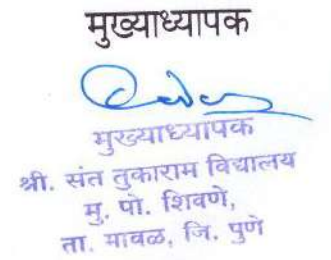 मुख्याध्यापक
मुख्याध्यापक
श्री. संत तुकाराम विद्यालय
मु. पो. शिवणे,
ता. मावळ, जि. पुणे